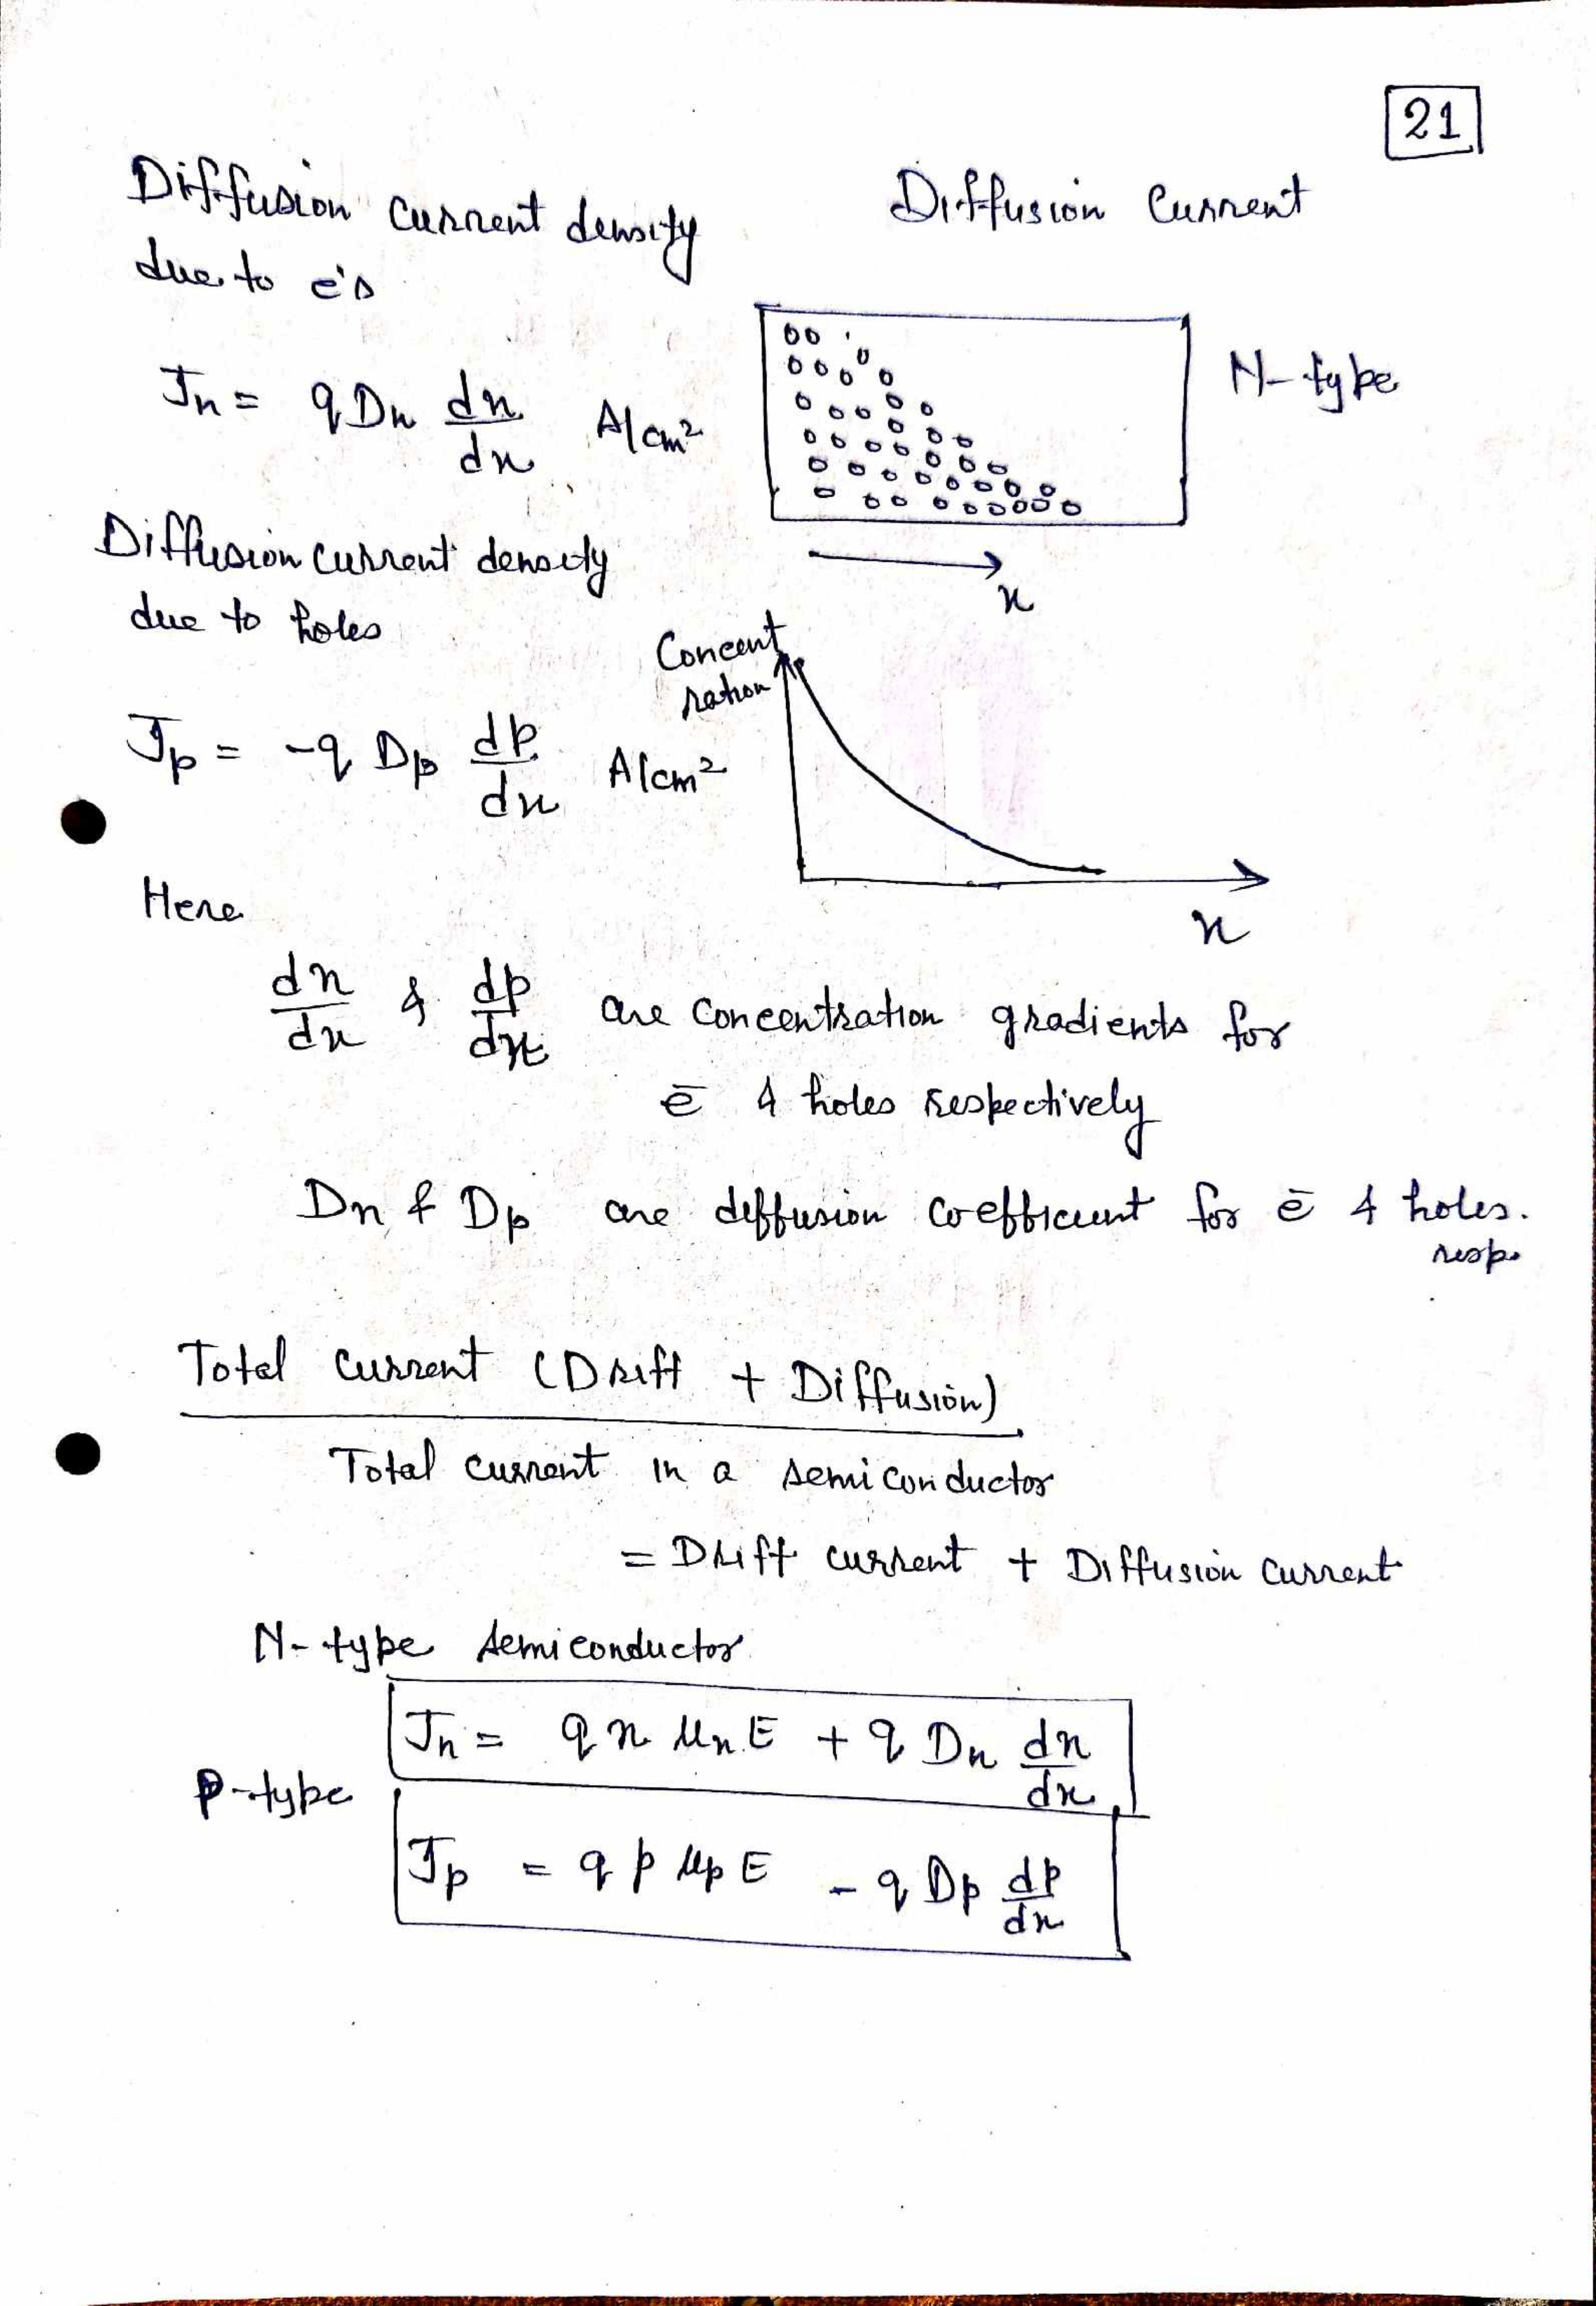 21
Diffusion current density
due to e's
Diffusion Current
Jn = qDn dn/dx A/cm²
N-type
x
Diffusion current density
due to holes
Concent
ration
Jp = -q Dp dp/dx A/cm²
x
Here
dn/dx & dp/dx are concentration gradients for
ē & holes respectively
Dn & Dp are diffusion coefficient for ē & holes.
resp.
Total current (Drift + Diffusion)
Total current in a semiconductor
= Drift current + Diffusion current
N-type semiconductor
Jn = q n μn E + q Dn dn/dx
P-type
Jp = q p μp E - q Dp dp/dx